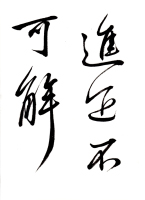 進退不
可解